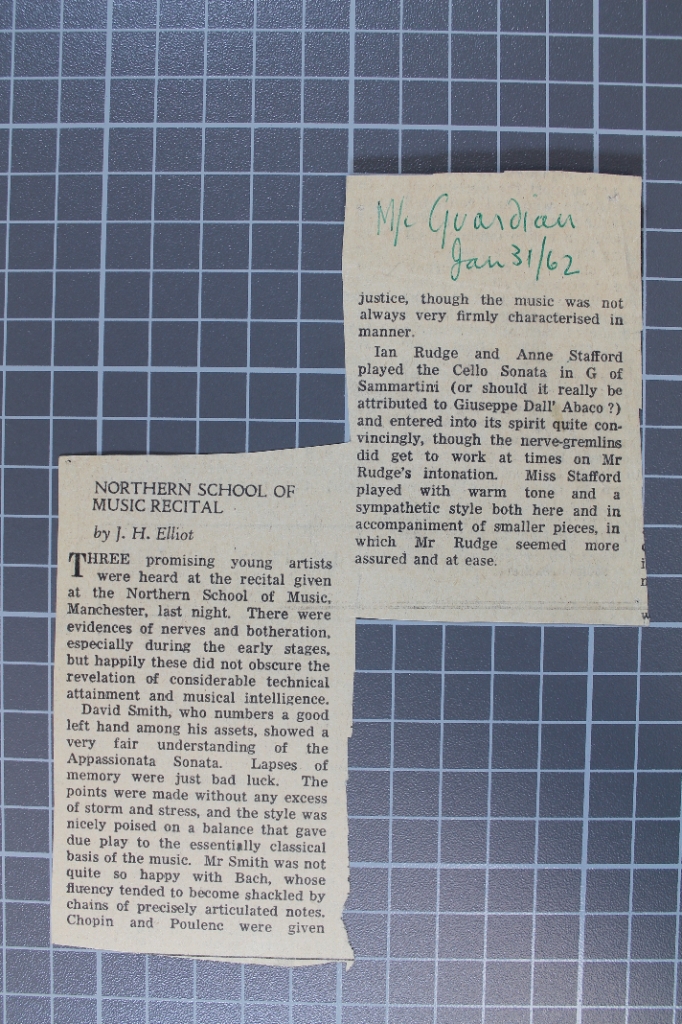 M/c Guardian
Jan 31/62
NORTHERN SCHOOL OF
MUSIC RECITAL
by J. H. Elliot
THREE promising young artists
were heard at the recital given
at the Northern School of Music,
Manchester, last night. There were
evidences of nerves and botheration,
especially during the early stages,
but happily these did not obscure the
revelation of considerable technical
attainment and musical intelligence.
David Smith, who numbers a good
left hand among his assets, showed a
very fair understanding of the
Appassionata Sonata. Lapses of
memory were just bad luck. The
points were made without any excess
of storm and stress, and the style was
nicely poised on a balance that gave
due play to the essentially classical
basis of the music. Mr Smith was not
quite so happy with Bach, whose
fluency tended to become shackled by
chains of precisely articulated notes.
Chopin and Poulenc were given
justice, though the music was not
always very firmly characterised in
manner.
Ian Rudge and Anne Stafford
played the Cello Sonata in G of
Sammartini (or should it really be
attributed to Giuseppe Dall' Abaco?)
and entered into its spirit quite con-
vincingly, though the nerve-gremlins
did get to work at times on Mr
Rudge's intonation. Miss Stafford
played with warm tone and a
sympathetic style both here and in
accompaniment of smaller pieces, in
which Mr Rudge seemed more
assured and at ease.